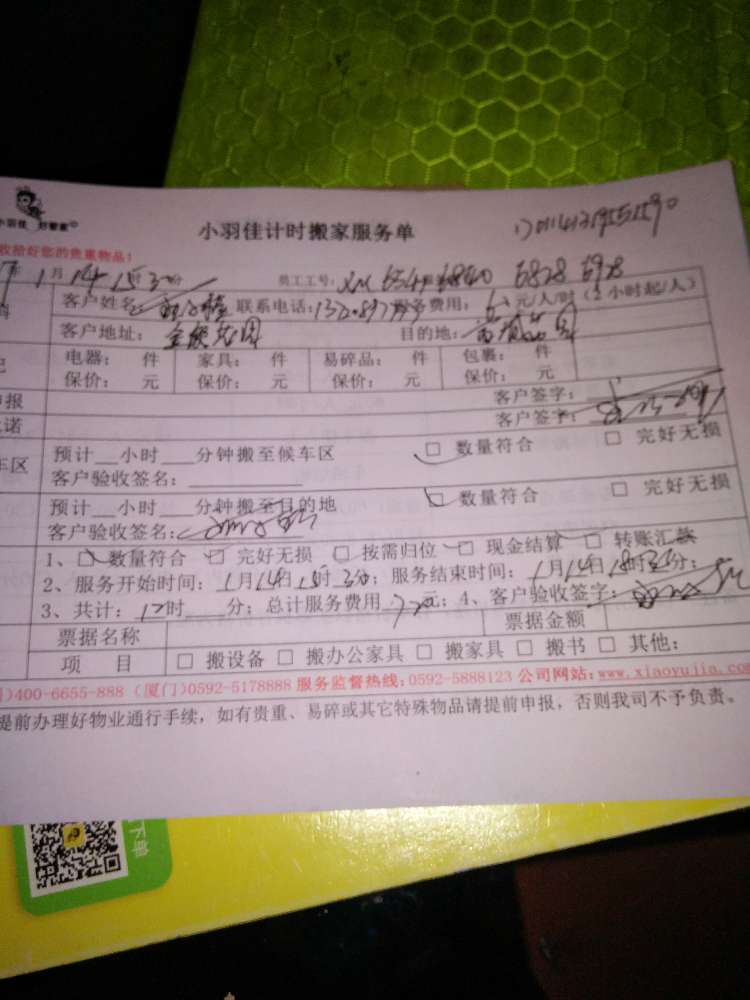 小羽佳 好管家
小羽佳计时搬家服务单
收拾好您的贵重物品!
1月14 15时30分 员工工号: 6828 6978
客户姓名: 联系电话: 服务费用: 元/人/时(2小时起/人)
客户地址: 花园 目的地: 花园
电器: 件 家具: 件 易碎品: 件 包裹: 件
保价: 元 保价: 元 保价: 元 保价: 元
申报 客户签字:
诺 客户签字:
车区 预计__小时___分钟搬至候车区 □ 数量符合 □ 完好无损
客户验收签名:
预计__小时___分钟搬至目的地 □ 数量符合 □ 完好无损
客户验收签名:
1、□ 数量符合 □ 完好无损 □ 按需归位 □ 现金结算 □ 转账汇款
2、服务开始时间: 1月14日15时30分; 服务结束时间: 1月14日18时30分;
3、共计: 12时 分; 总计服务费用 720元; 4、客户验收签字:
票据名称 票据金额
项 目 □ 搬设备 □ 搬办公家具 □ 搬家具 □ 搬书 □ 其他:
)400-6655-888 (厦门)0592-5178888 服务监督热线:0592-5888123 公司网站:www.xiaoyujia.com
提前办理好物业通行手续，如有贵重、易碎或其它特殊物品请提前申报，否则我司不予负责。
下单